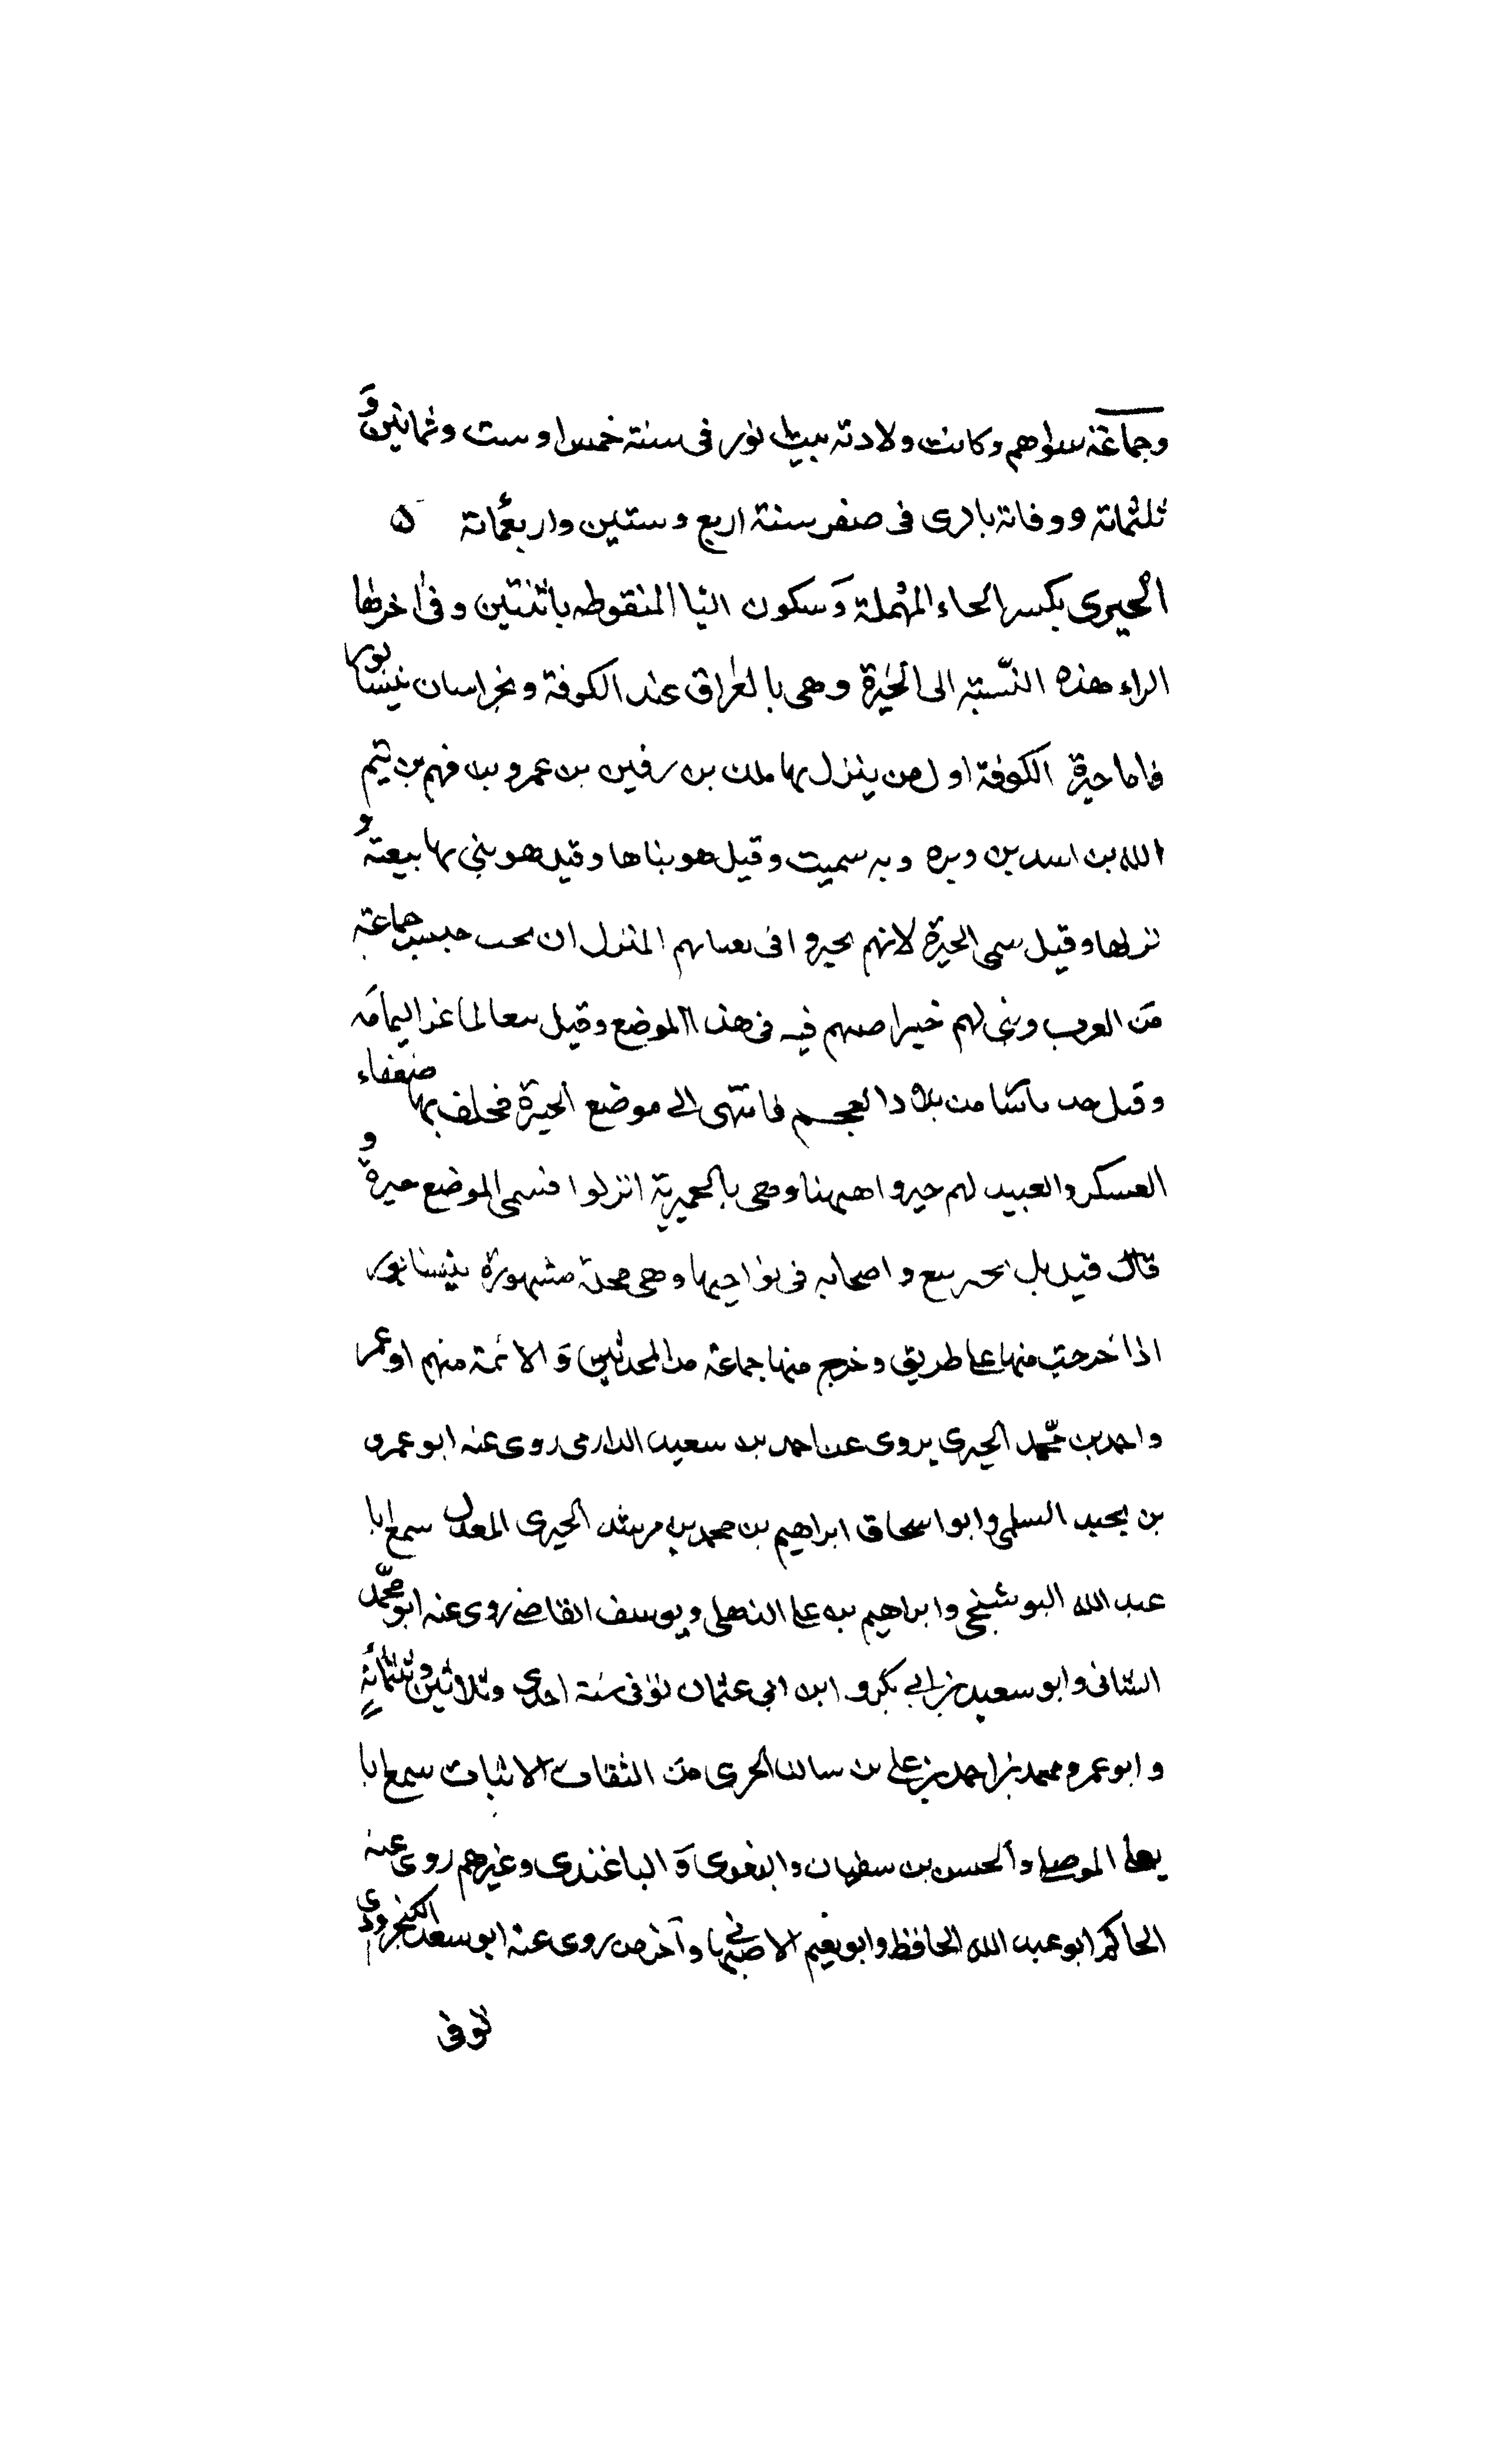 وجماعة سواهم وكانت ولادته بنيسابور فى سنة خمس او ست وثمانين و
ثلثمائة ووفاته بالرى فى صفر سنة اربع وستين واربعمائة ه
الحيرى بكسر الحاء المهملة وسكون اليا المنقوطه باثنتين وفى اخرها
الراء هذه النسبة الى الحيرة وهى بالعراق عند الكوفة وبخراسان بنيسابور
فاما حيرة الكوفة اول من ينزل بها ملك بن زفين بن عمرو بن فهم بن تيم
الله بن اسد بن وبره وبه سميت وقيل هو بناها وقيل هو بنى بها بيعة و
نزلها وقيل سمى الحيرة لانهم تحيروا فى المنزل ان جماعة
من العرب وبنى لهم فيه فى هذا الموضع وقيل لما غزا اليمامه
وقيل من بلاد العجم فانتهى الى موضع الحيرة فخلف بها ضعفاء
العسكر والعبيد لهم حيروا ههنا وهى بالحميرية انزلوا فسمى الموضع حيرة و
قال قيل بل واصحابه فى نواحيها وهى محلة مشهورة بنيسابور
اذا خرجت منها على طريق وخرج منها جماعة من المحدثين والائمة منهم ابو عمر
واحمد بن محمد الحيرى يروى عن احمد بن سعيد الدارمى روى عنه ابو عمرو
بن نجيد السلمى وابو اسحاق ابراهيم بن محمد بن مرثد الحيرى المعدل سمع ابا
عبد الله البوشنجى وابراهيم بن على الذهلى ويوسف القاضى روى عنه ابو محمد
الشانى وابو سعيد بن ابى بكر و ابن ابى عثمان توفى سنة احدى وثلاثين وثلثمائة
وابو عمرو محمد بن احمد بن على بن الحيرى من الثقات الاثبات سمع ابا
يعلى الموصلى والحسن بن سفيان والبغوى و الباغندى وغيرهم روى عنه
الحاكم ابو عبد الله الحافظ وابو نعيم الاصبهانى وآخر من روى عنه ابو سعد الكنجرودى
توفى